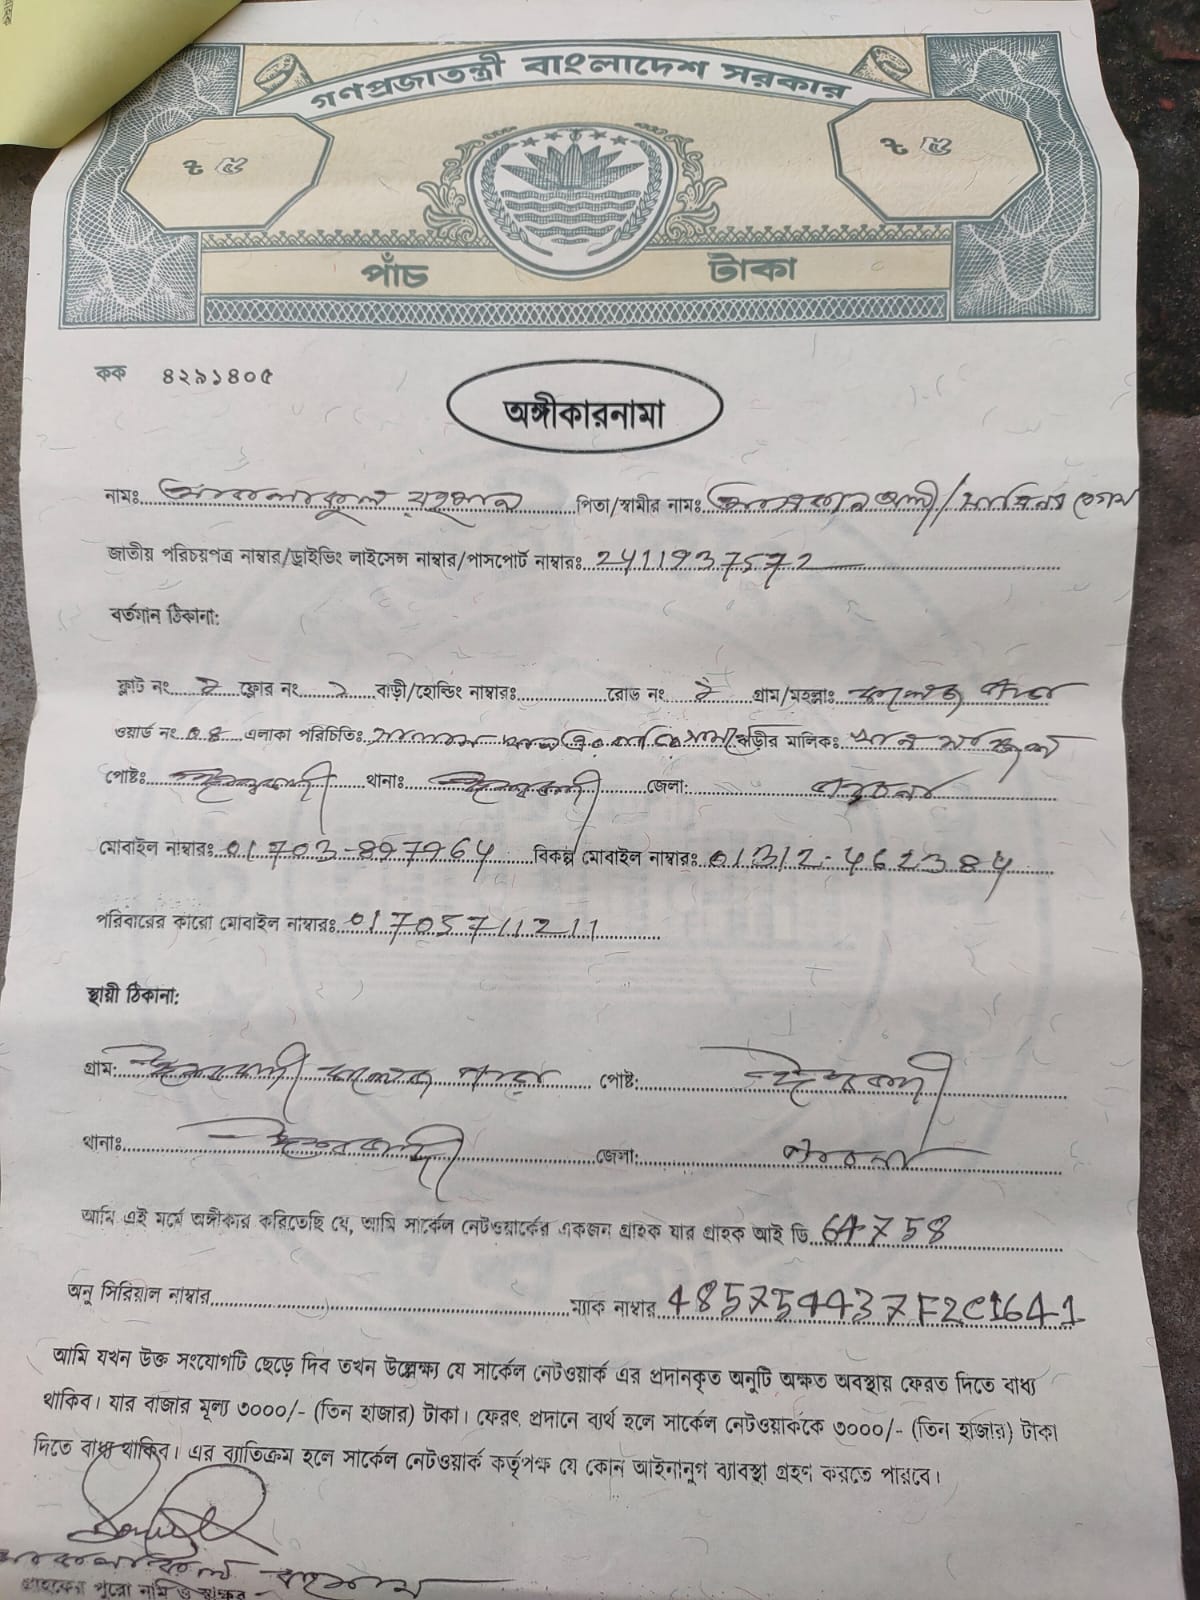 গণপ্রজাতন্ত্রী বাংলাদেশ সরকার
৳ ৫ ৳ ৫
পাঁচ টাকা
কক ৪২৯১৪০৫
অঙ্গীকারনামা
নামঃ রহমান পিতা/স্বামীর নামঃ বেগম
জাতীয় পরিচয়পত্র নাম্বার/ড্রাইভিং লাইসেন্স নাম্বার/পাসপোর্ট নাম্বারঃ 2411937572
বর্তমান ঠিকানা:
ফ্লাট নং ফ্লোর নং বাড়ী/হোল্ডিং নাম্বারঃ রোড নং গ্রাম/মহল্লাঃ কলেজ পাড়া
ওয়ার্ড নং এলাকা পরিচিতিঃ বাড়ীর মালিকঃ
পোষ্টঃ ঈশ্বরদী থানাঃ ঈশ্বরদী জেলা: পাবনা
মোবাইল নাম্বারঃ 01703-897964 বিকল্প মোবাইল নাম্বারঃ 01312-462384
পরিবারের কারো মোবাইল নাম্বারঃ 01705711211
স্থায়ী ঠিকানা:
গ্রাম: ঈশ্বরদী কলেজ পাড়া পোষ্ট: ঈশ্বরদী
থানাঃ ঈশ্বরদী জেলা: পাবনা
আমি এই মর্মে অঙ্গীকার করিতেছি যে, আমি সার্কেল নেটওয়ার্কের একজন গ্রাহক যার গ্রাহক আই ডি 64758
অনু সিরিয়াল নাম্বার ম্যাক নাম্বার 485754437F2C1641
আমি যখন উক্ত সংযোগটি ছেড়ে দিব তখন উল্লেক্ষ্য যে সার্কেল নেটওয়ার্ক এর প্রদানকৃত অনুটি অক্ষত অবস্থায় ফেরত দিতে বাধ্য
থাকিব। যার বাজার মূল্য ৩০০০/- (তিন হাজার) টাকা। ফেরৎ প্রদানে ব্যর্থ হলে সার্কেল নেটওয়ার্ককে ৩০০০/- (তিন হাজার) টাকা
দিতে বাধ্য থাকিব। এর ব্যাতিক্রম হলে সার্কেল নেটওয়ার্ক কর্তৃপক্ষ যে কোন আইনানুগ ব্যাবস্থা গ্রহণ করতে পারবে।
রহমান
গ্রাহকের পুরো নাম ও স্বাক্ষর